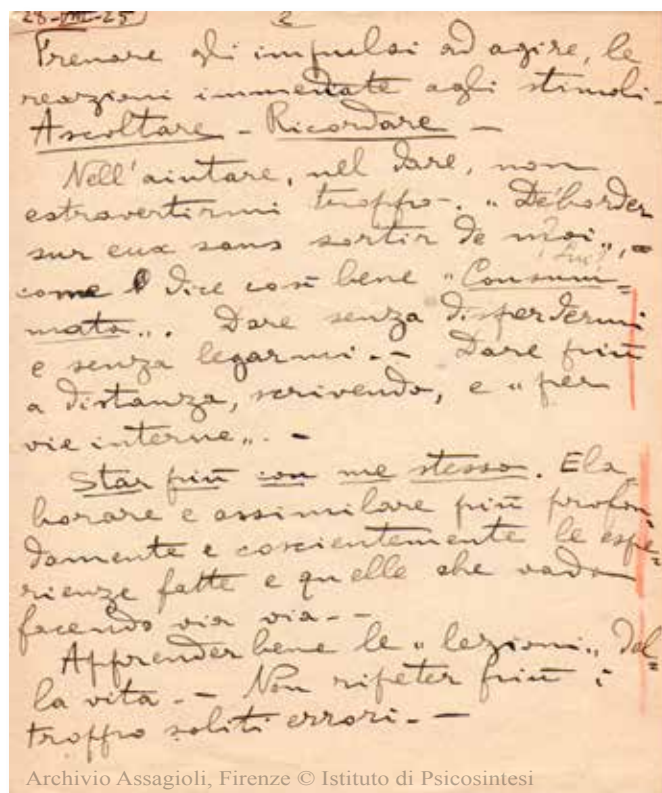 28-VIII-25) 2
Frenare gli impulsi ad agire, le
reazioni immediate agli stimoli -
Ascoltare - Ricordare -
Nell'aiutare, nel dare, non
estravertirmi troppo -. „ Déborder
sur eux sans sortir de moi „, =
come dice così bene „ Consum=
mata „. Dare senza disperdermi
e senza legarmi. - Dare più
a distanza, scrivendo, e „ per
vie interne „. -
Star più con me stesso. Ela
borare e assimilare più profon=
damente e coscientemente le espe=
rienze fatte e quelle che vado
facendo via via - -
Apprender bene le „ lezioni „ del=
la vita. - Non ripeter più i
troppo soliti errori. -
Archivio Assagioli, Firenze © Istituto di Psicosintesi